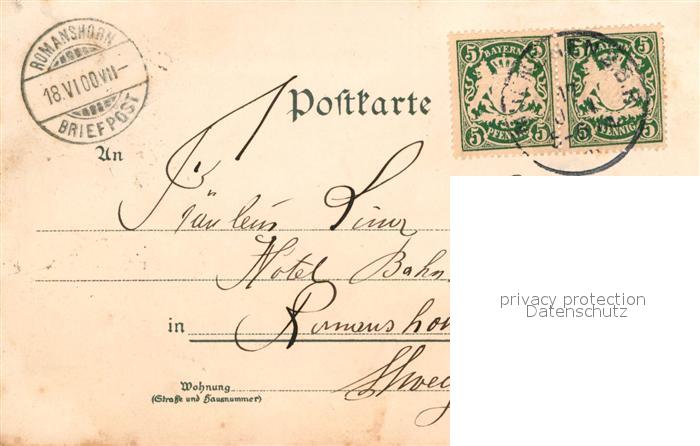 ROMANSHORN
18.VI.00.VII-
BRIEFPOST
BAYERN 5 5 5 5 PFENNIG
BAYERN 5 5 5 5 PFENNIG
Postkarte
An
Fräulein
Hotel Bahn
in Romansho
Wohnung
(Straße und Hausnummer)
privacy protection
Datenschutz